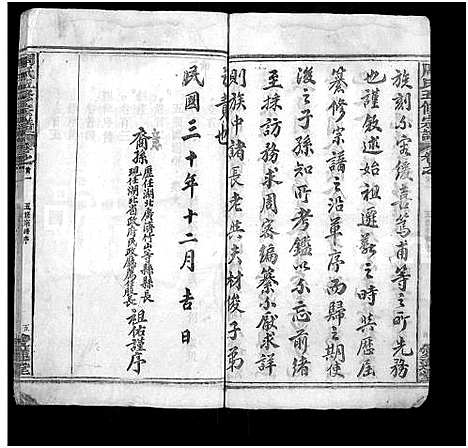 族刻不容緩喜篤甫等之所先務
也謹敘述始祖遷義之時與歷屆
纂修宗譜之沿革序而歸之期使
後之子孫知所考鑑以不忘前緒
至採訪務求周密編纂不厭求詳
則族中諸長老與夫材俊子弟
責也
民國三十年十二月吉日
裔孫
歷任湖北廣濟竹山等縣縣長
現任湖北省政府民政廳
祖佑謹序
五修宗譜